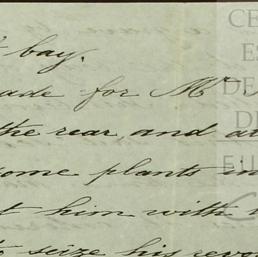 bay.
ade for Mr
the rear, and a
some plants in
t him with
to seize his revo
CE
ES
DE
DE